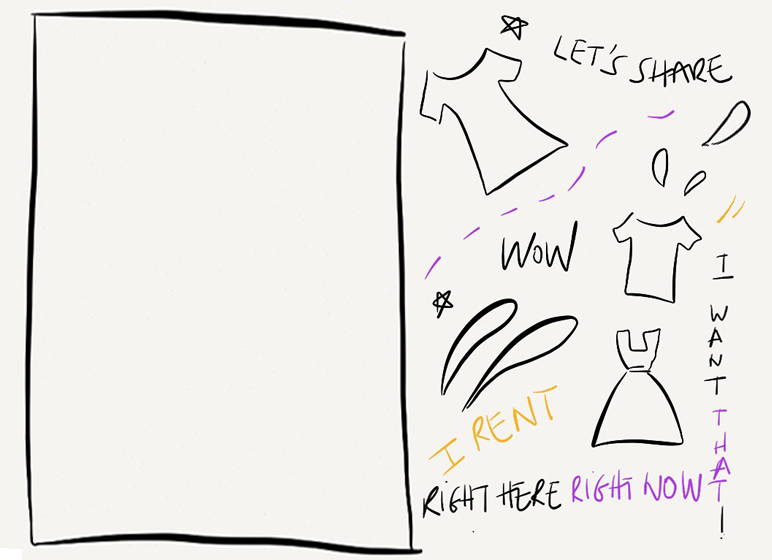 LET'S SHARE
WOW
I WANT THAT!
I RENT
RIGHT HERE RIGHT NOW